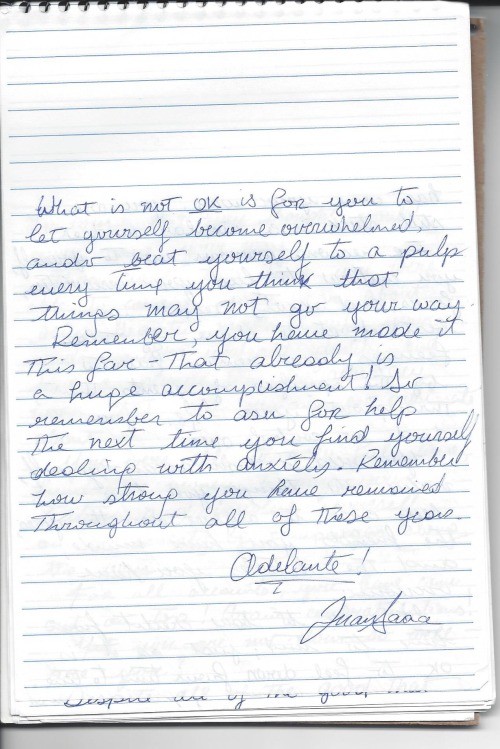 What is not OK is for you to
let yourself become overwhelmed,
and beat yourself to a pulp
every time you think that
things may not go your way.
Remember, you have made it
this far - That already is
a huge accomplishment! So
remember to ask for help
The next time you find yourself
dealing with anxiety. Remember
how strong you have remained
Throughout all of these years.
Adelante!
Despite all of the good